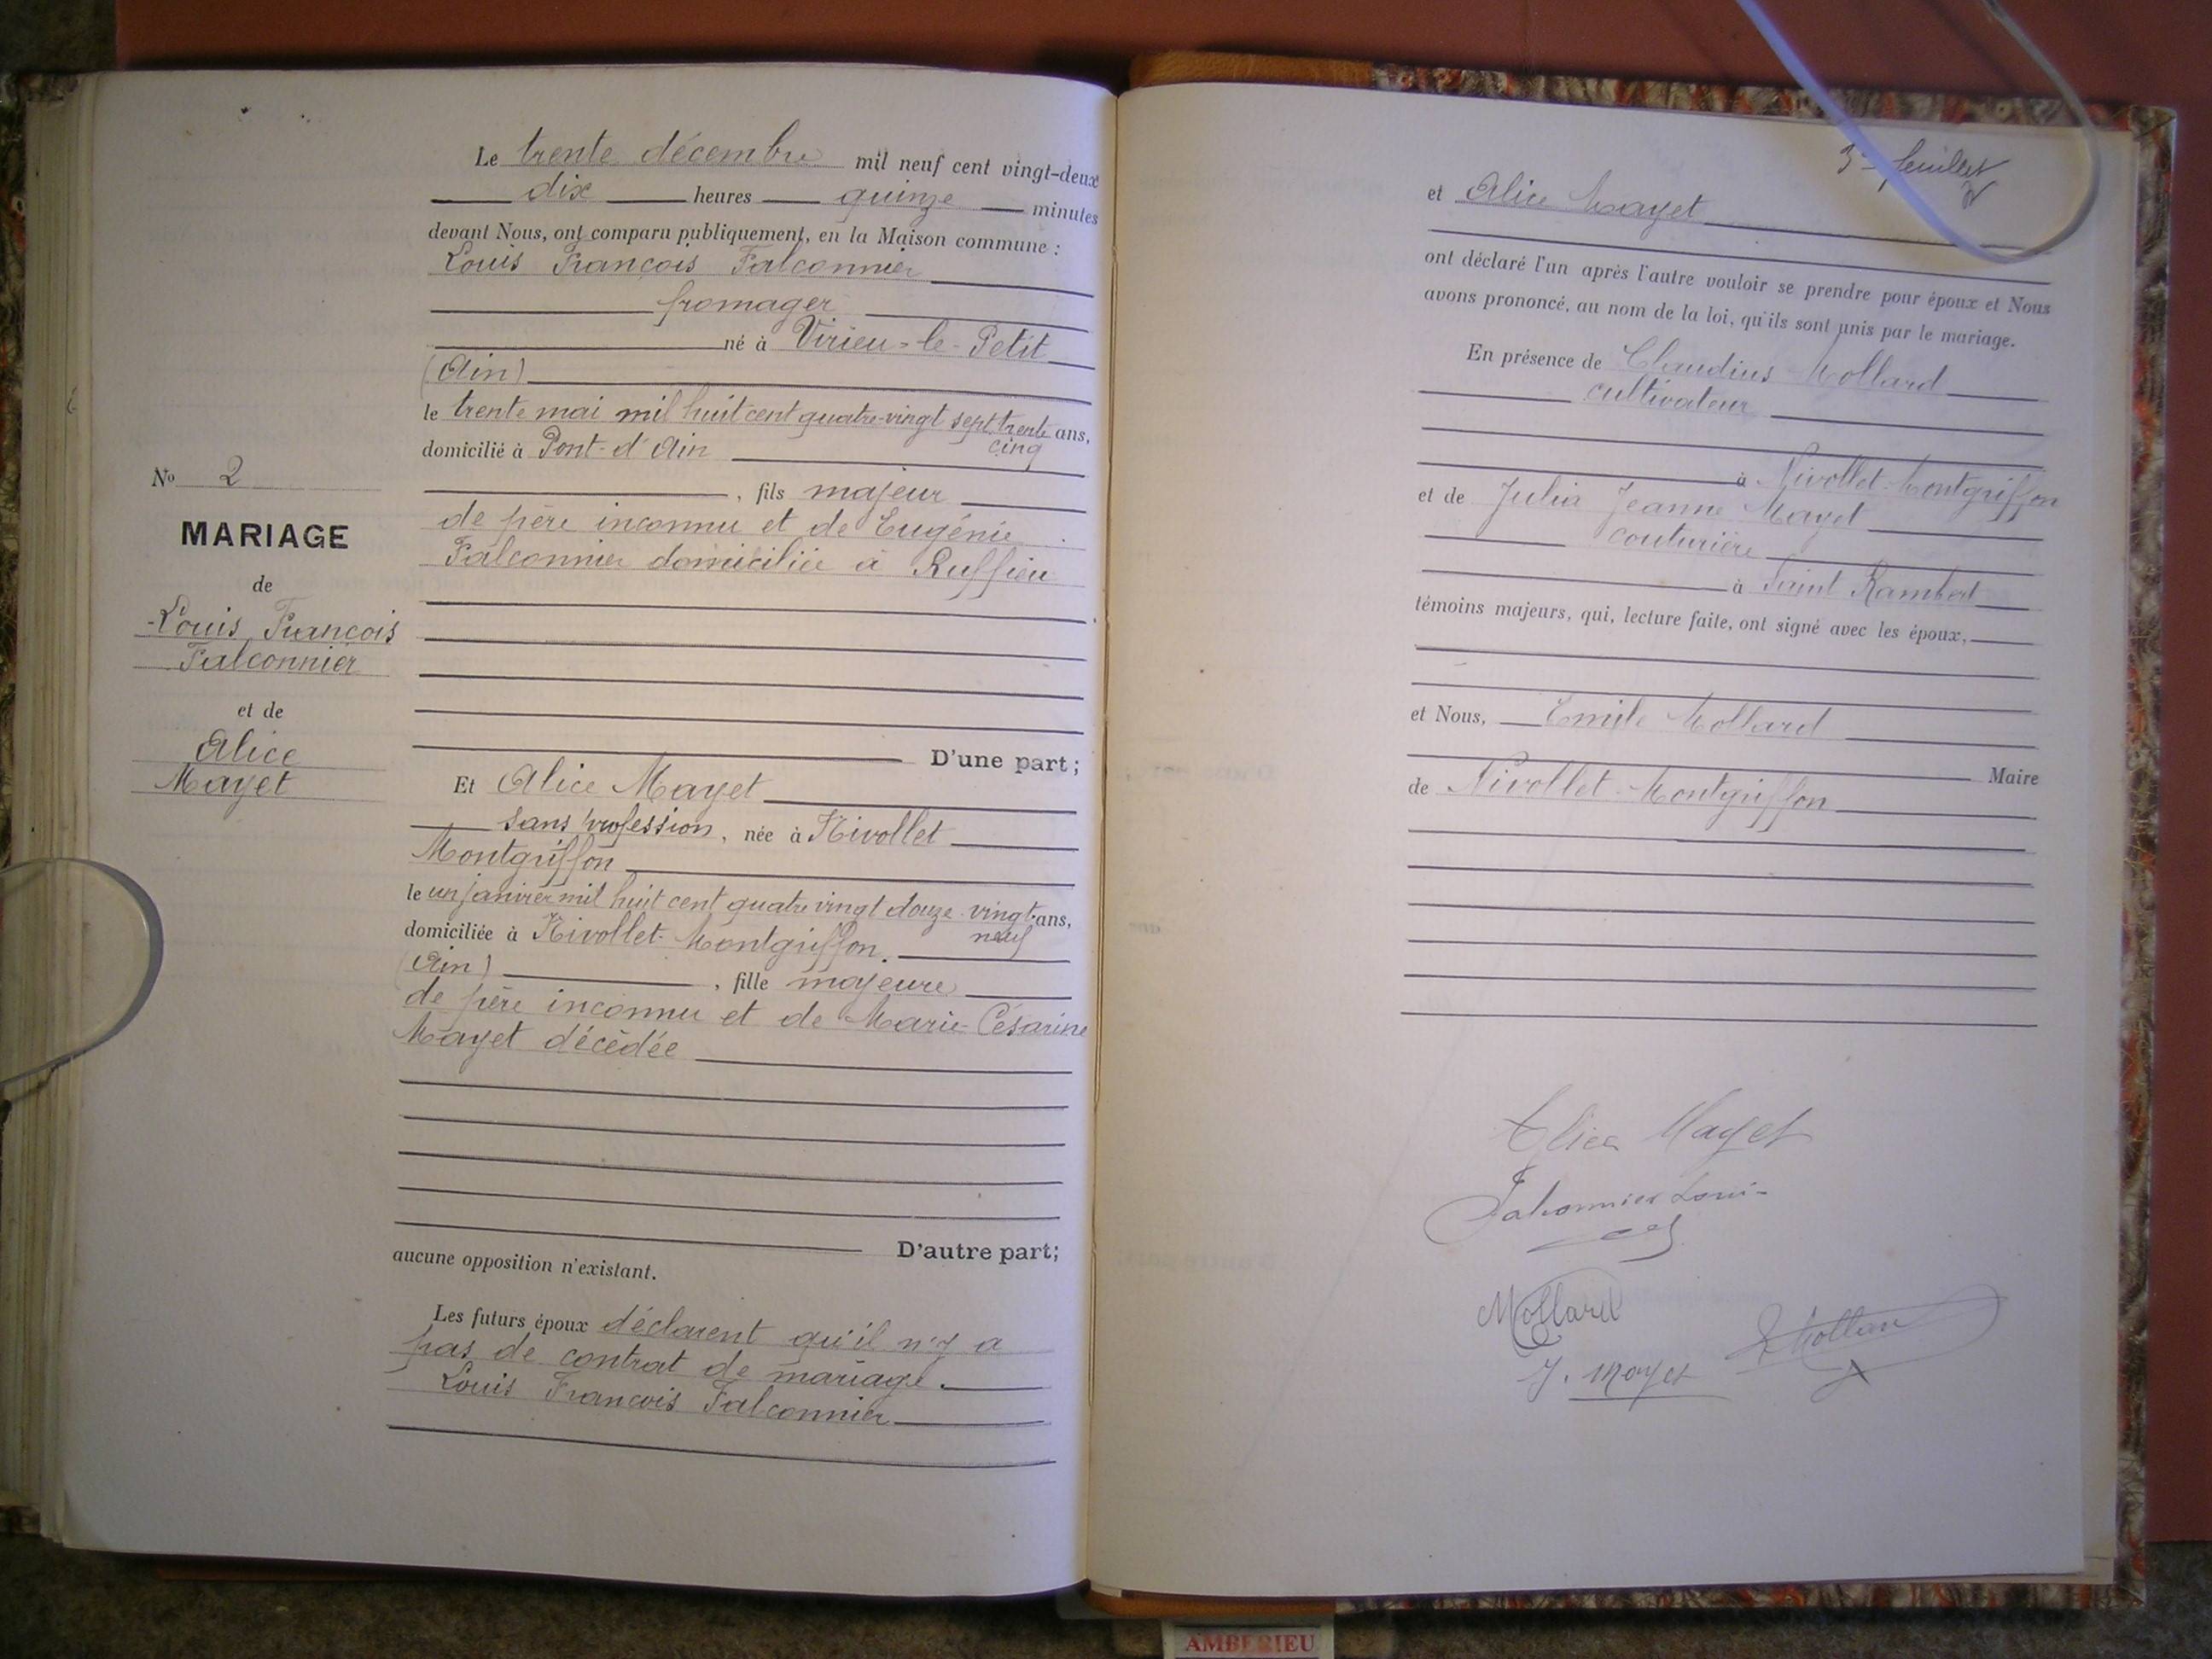 Le trente décembre mil neuf cent vingt-deux
dix heures quinze minutes
devant Nous, ont comparu publiquement, en la Maison commune :
Louis François Falconnier
fromager
né à Virieu-le-Petit
(Ain)
le trente mai mil huit cent quatre-vingt sept, trente ans,
cinq
domicilié à Pont-d'Ain
, fils majeur
de père inconnu et de Eugénie
Falconnier domiciliée à Ruffieu
D'une part ;
Et Alice Mayet
sans profession, née à Nivollet
Montgriffon
le un janvier mil huit cent quatre vingt douze vingt ans,
neuf
domiciliée à Nivollet-Montgriffon.
(Ain) , fille majeure
de père inconnu et de Marie-Césarine
Mayet décédée
D'autre part ;
aucune opposition n'existant.
Les futurs époux déclarent qu'il n'y a
pas de contrat de mariage.
Louis François Falconnier
No 2
MARIAGE
de
Louis François
Falconnier
et de
Alice
Mayet
3e feuillet
et Alice Mayet
ont déclaré l'un après l'autre vouloir se prendre pour époux et Nous
avons prononcé, au nom de la loi, qu'ils sont unis par le mariage.
En présence de Claudius Mollard
cultivateur
à Nivollet-Montgriffon
et de Julia Jeanne Mayet
couturière
à Saint Rambert
témoins majeurs, qui, lecture faite, ont signé avec les époux,
et Nous, Emile Mollard
Maire
de Nivollet-Montgriffon
Alice Mayet
Falconnier Louis
Mollard
J. Mayet
E Mollard
AMBERIEU